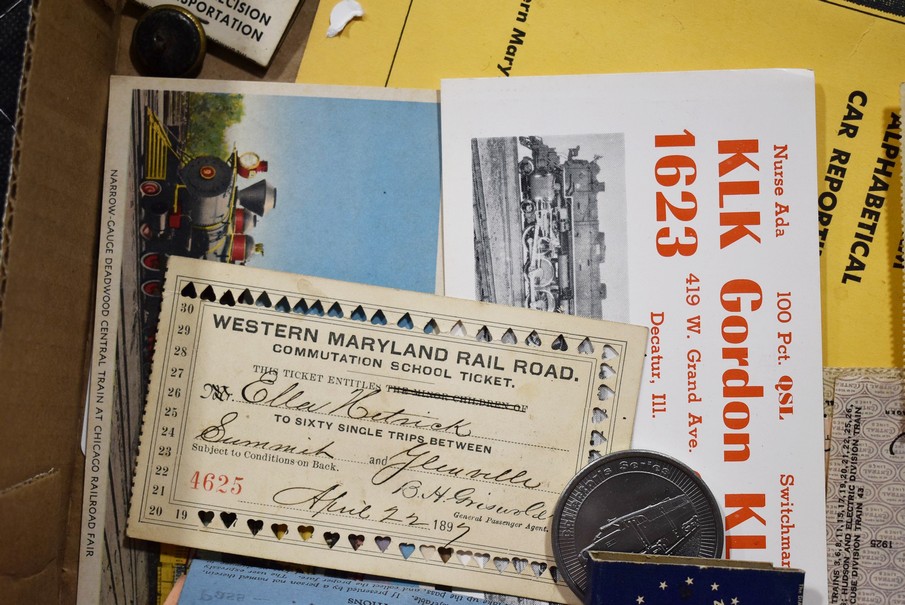 RECISION
SPORTATION
rn Mary
ALPHABETICAL
CAR REPORT
NARROW-GAUGE DEADWOOD CENTRAL TRAIN AT CHICAGO RAILROAD FAIR
Nurse Ada 100 Pct. QSL Switchman
KLK Gordon KL
1623
419 W. Grand Ave.
Decatur, Ill.
WESTERN MARYLAND RAIL ROAD.
COMMUTATION SCHOOL TICKET.
THIS TICKET ENTITLES THE MINOR CHILDREN OF
Ella Hetrick
TO SIXTY SINGLE TRIPS BETWEEN
Summit and Glenville
Subject to Conditions on Back.
4625
B.H. Griswold
General Passenger Agent.
April 22 1897
30
29
28
27
26
25
24
23
22
21
20 19
Series
TRAINS 3, 6,
HUDSON AND ELECTRIC DIVISION TRAIN
DIVISION TRAIN 43
1925
Pass